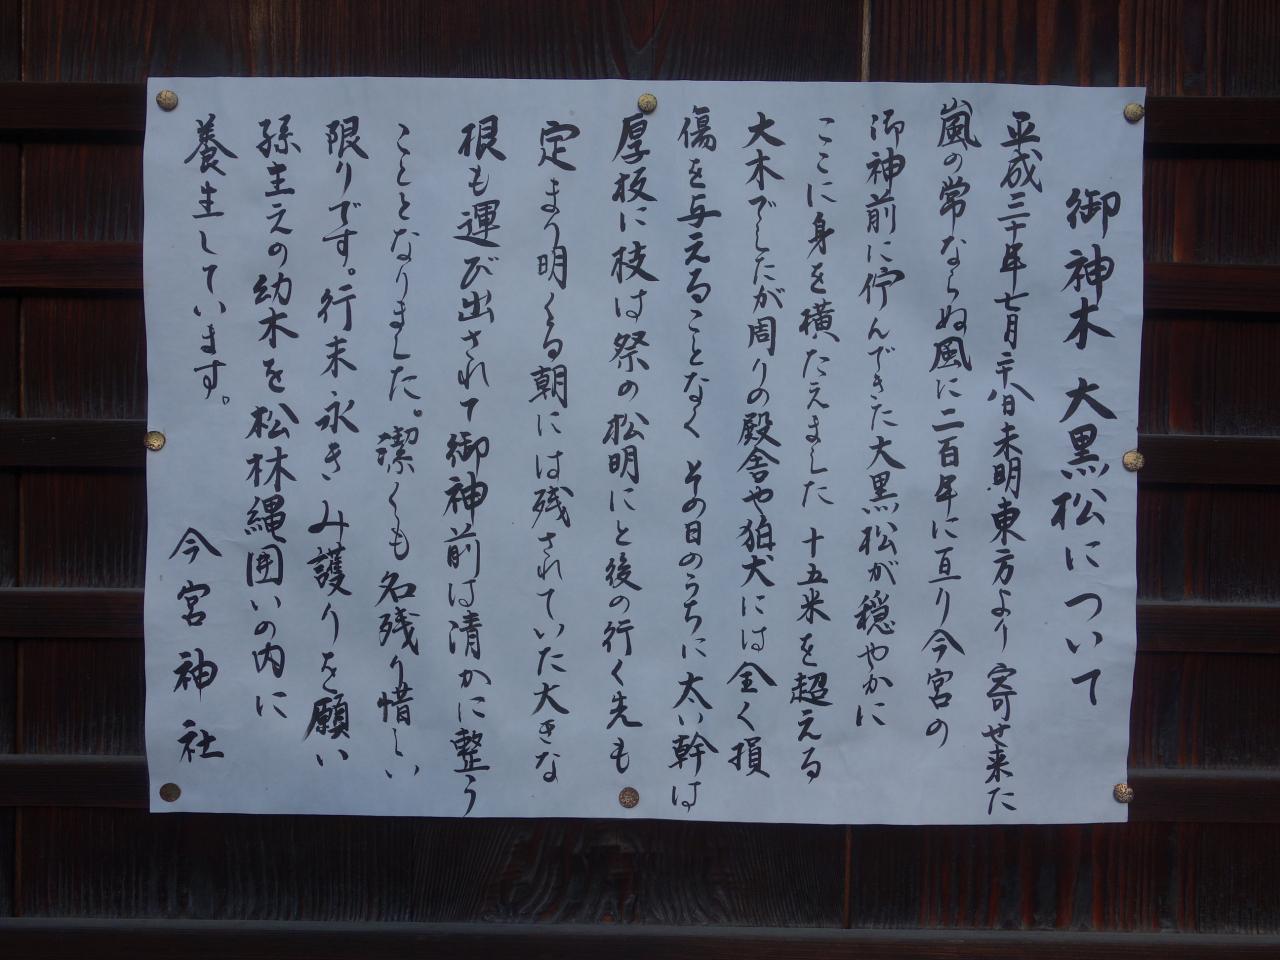 御神木 大黒松について
平成三十年七月二十八日未明東方より寄せ来た
嵐の常ならぬ風に二百年に亘り今宮の
御神前に佇んできた大黒松が穏やかに
ここに身を横たえました 十五米を超える
大木でしたが周りの殿舎や狛犬には全く損
傷を与えることなく その日のうちに太い幹は
厚板に枝は祭の松明にと後の行く先も
定まり明くる朝には残されていた大きな
根も運び出されて御神前は清かに整う
こととなりました。潔くも名残り惜しい
限りです。行末永きみ護りを願い
孫生えの幼木を松林縄囲いの内に
養生しています。
今宮神社